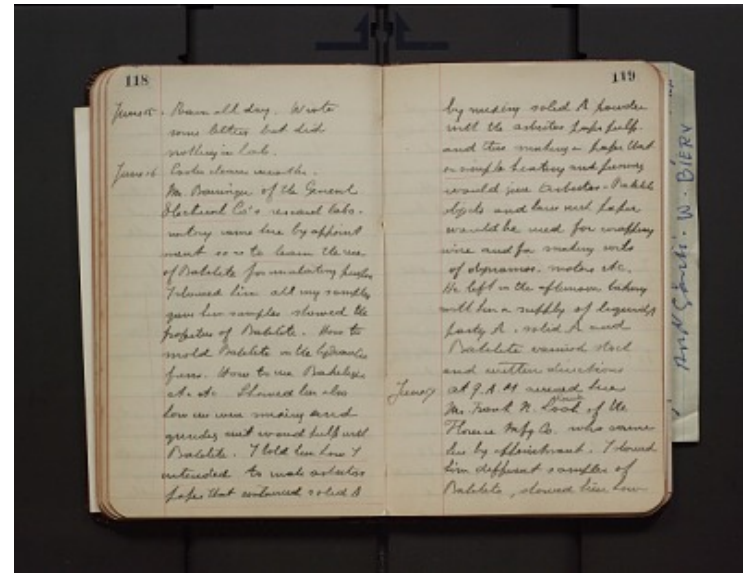 118
June 15. Rain all day. Wrote
some letters but did
nothing in lab.
June 16 Easter
Mr. of the General
Electrical Co's research labo-
ratory came here by appoint
ment so as to learn the use
of Bakelite for insulating purposes
I showed him all my samples
gave him samples showed the
properties of Bakelite. How to
mold Bakelite in the hydraulic
press. How to use Bakelite
etc. etc. Showed him also
how we were mixing and
grinding wood pulp with
Bakelite. I told him how I
intended to make asbestos
paper that contained solid A
119
by mixing solid A powder
with the asbestos paper pulp.
and thus making a paper that
on simple heating and pressing
would give Asbestos-Bakelite
objects and how such paper
would be used for wrapping
wire and for making coils
of dynamos. motors etc.
He left in the afternoon taking
with him a supply of liquid A
party A. solid A and
Bakelite varnish stock
and written directions
June 17 at 9. A.M arrived here
Mr. Frank N. Look of the
Florence Mfg Co. who came
here by appointment. I showed
him different samples of
Bakelite, showed him how
W. BIERY